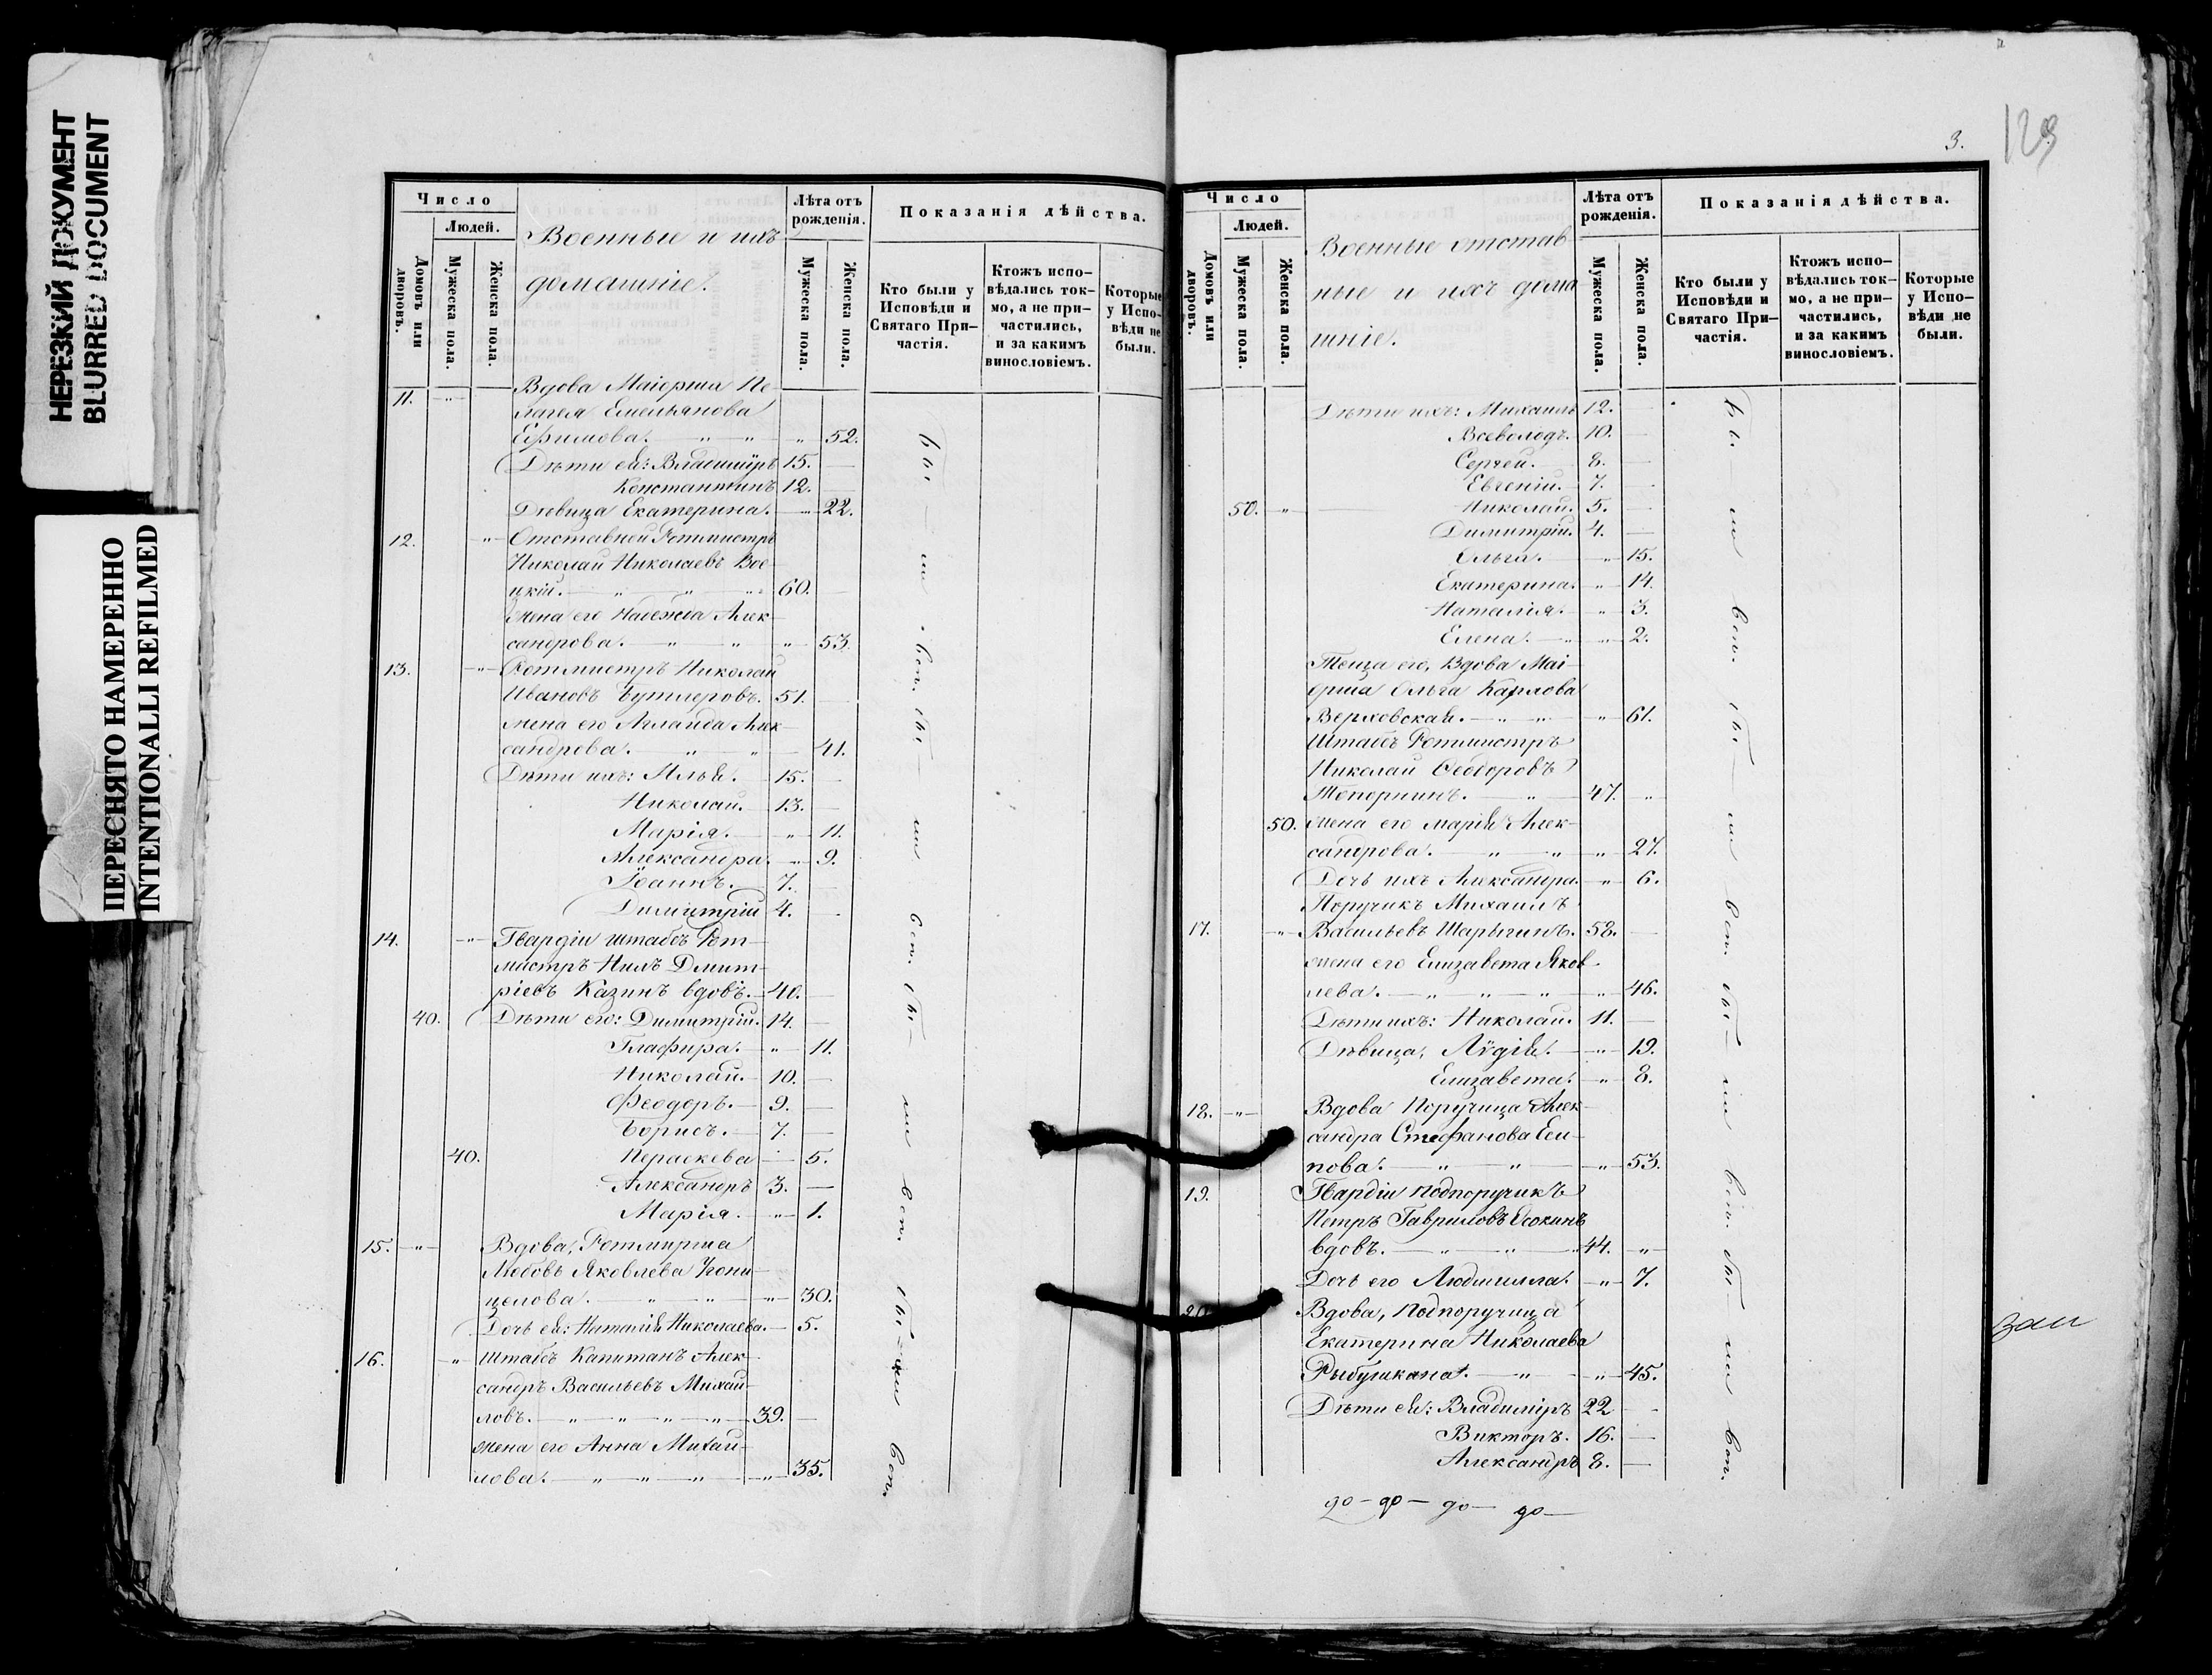 НЕРЕЗКИЙ ДОКУМЕНТ
BLURRED DOCUMENT
ПЕРЕСНЯТО НАМЕРЕННО
INTENTIONALLI REFILMED
Число
Людей.
Домовъ или дворовъ.
Мужеска пола.
Женска пола.
Военные и ихъ
домашніе.
Лѣта отъ рожденія.
Мужеска пола.
Женска пола.
Показанія дѣйства.
Кто были у Исповѣди и Святаго При-
частія.
Ктожъ испо-
вѣдались ток-
мо, а не при-
частились,
и за какимъ
винословіемъ.
Которые
у Испо-
вѣди не
были.
11. Вдова Маіорша Пе-
лагея Емельянова
Ефимова. 52.
Дѣти ея: Владиміръ 15.
Константинъ 12.
Дѣвица Екатерина. 22.
12. Отставной Ротмистръ
Николай Николаевъ Вое-
цкій. 60.
Жена его Надежда Алек-
сандрова. 53.
13. Ротмистръ Николай
Ивановъ Бутлеровъ. 51.
Жена его Аглаида Алек-
сандрова. 41.
Дѣти ихъ: Илья. 15.
Николай. 13.
Марія. 11.
Александра. 9.
Іоаннъ. 7.
Димитрій 4.
14. Гвардіи штабсъ Рот-
мистръ Нилъ Дмит-
ріевъ Казинъ вдовъ. 40.
40. Дѣти его: Димитрій. 14.
Глафира. 11.
Николай. 10.
Феодоръ. 9.
Борисъ. 7.
40. Параскева 5.
Александръ 3.
Марія. 1.
15. Вдова, Ротмирша
Любовь Яковлева
целова. 30.
Дочь ея: Наталія Николаева. 5.
16. Штабсъ Капитанъ Алек-
сандръ Васильевъ Михай-
ловъ. 39.
Жена его Анна Михай-
лова. 35.
3.
129
Число
Людей.
Домовъ или дворовъ.
Мужеска пола.
Женска пола.
Военные отстав
ные и ихъ дома
шніе.
Лѣта отъ рожденія.
Мужеска пола.
Женска пола.
Показанія дѣйства.
Кто были у
Исповѣди и
Святаго При-
частія.
Ктожъ испо-
вѣдались ток-
мо, а не при-
частились,
и за какимъ
винословіемъ.
Которые
у Испо-
вѣди не
были.
Дѣти ихъ: Михаилъ 12.
Всеволодъ. 10.
Сергей. 8.
Евгеній. 7.
50. Николай. 5.
Димитрій. 4.
Ольга. 15.
Екатерина. 14.
Наталія. 3.
Елена. 2.
Теща его, Вдова Маі-
орша Ольга Карлова
Верховская. 61.
Штабсъ Ротмистръ
Николай Феодоровъ
Топорнинъ. 47.
50. Жена его Марія Алек-
сандрова. 27.
Дочь ихъ Александра. 6.
Поручикъ Михаилъ
17. Васильевъ Шарыгинъ. 58.
Жена его Елизавета Яков-
лева. 46.
Дѣти ихъ: Николай. 11.
Дѣвица, Лѵдія. 19.
Елизавета. 8.
18. Вдова Поручица Алек-
сандра Стефанова Еси-
пова. 53.
19. Гвардіи подпоручикъ
Петръ Гавриловъ Осокинъ
вдовъ. 44.
Дочь его Людмилла. 7.
20. Вдова, Подпоручица
Екатерина Николаева
Рыбушкина. 45.
Дѣти ея: Владиміръ 22
Викторъ. 16.
Александръ 8.
до - до - до - до